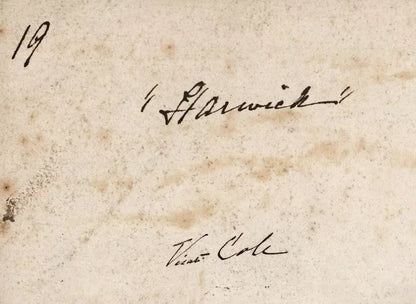 19
"Harwick"
Vicat Cole